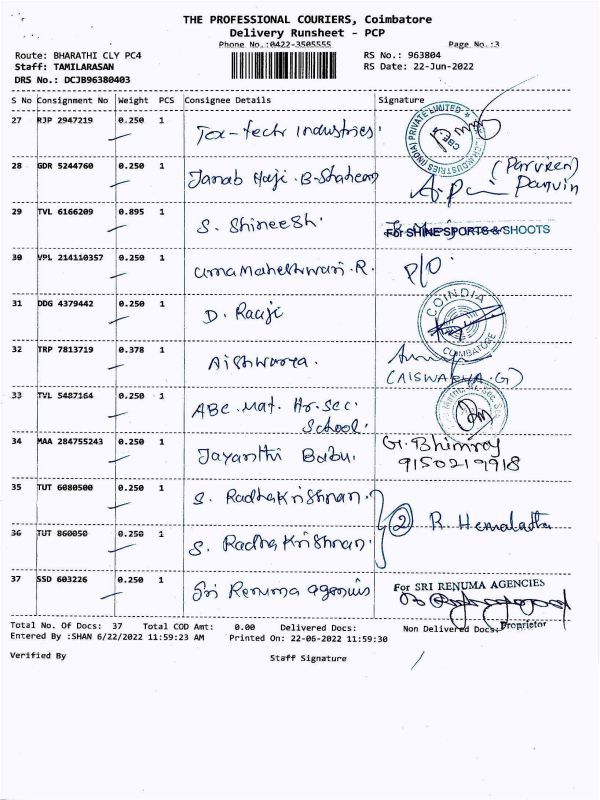 THE PROFESSIONAL COURIERS, Coimbatore
Delivery Runsheet - PCP
Phone No.:0422-3505555 Page No.:3
Route: BHARATHI CLY PC4 RS No.: 963804
Staff: TAMILARASAN RS Date: 22-Jun-2022
DRS No.: DCJB96380403
S No Consignment No Weight PCS Consignee Details Signature
27 RJP 2947219 0.250 1 Tex-tech industries.
28 GDR 5244760 0.250 1 Janab Haji. B. Shaheem (Parveen)
Parvin
29 TVL 6166209 0.895 1 S. Shineesh. For SHINE SPORTS & SHOOTS
30 VPL 214110357 0.250 1 Uma Maheshwari. R. P/O.
31 DDG 4379442 0.250 1 D. Raaji COINDIA
COIMBATORE
32 TRP 7813719 0.378 1 Aishwarya.
(AISWARYA.G)
33 TVL 5487164 0.250 1 ABC. Mat. Hr. Sec.
School.
34 MAA 284755243 0.250 1 Jayanthi Babu. G. Bhimroy
9150219918
35 TUT 6080500 0.250 1 S. Radhakrishnan.
② R. Hemalatha
36 TUT 860050 0.250 1 S. Radhakrishnan.
37 SSD 603226 0.250 1 Sri Renuma agencies For SRI RENUMA AGENCIES
Proprietor
Total No. Of Docs: 37 Total COD Amt: 0.00 Delivered Docs: Non Delivered Docs:
Entered By :SHAN 6/22/2022 11:59:23 AM Printed On: 22-06-2022 11:59:30
Verified By Staff Signature